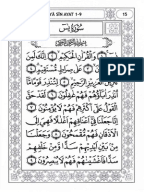 YÂ SÎN AYAT 1-9 15
سُورَةُ يٰسٓ
بِسْمِ اللّٰهِ الرَّحْمٰنِ الرَّحِيمِ
يٰسٓ وَالْقُرْاٰنِ الْحَكِيمِ اِنَّكَ لَمِنَ
الْمُرْسَلِينَ عَلٰى صِرَاطٍ مُسْتَقِيمٍ تَنْزِيلَ
الْعَزِيزِ الرَّحِيمِ لِتُنْذِرَ قَوْمًا مَا اُنْذِرَ
اٰبَاؤُهُمْ فَهُمْ غَافِلُونَ لَقَدْ حَقَّ
الْقَوْلُ عَلٰى اَكْثَرِهِمْ فَهُمْ لَا يُؤْمِنُونَ
اِنَّا جَعَلْنَا فِى اَعْنَاقِهِمْ اَغْلَالًا فَهِىَ اِلَى
الْاَذْقَانِ فَهُمْ مُقْمَحُونَ وَجَعَلْنَا
مِنْ بَيْنِ اَيْدِيهِمْ سَدًّا وَمِنْ خَلْفِهِمْ سَدًّا
فَاَغْشَيْنَاهُمْ فَهُمْ لَا يُبْصِرُونَ
PDF